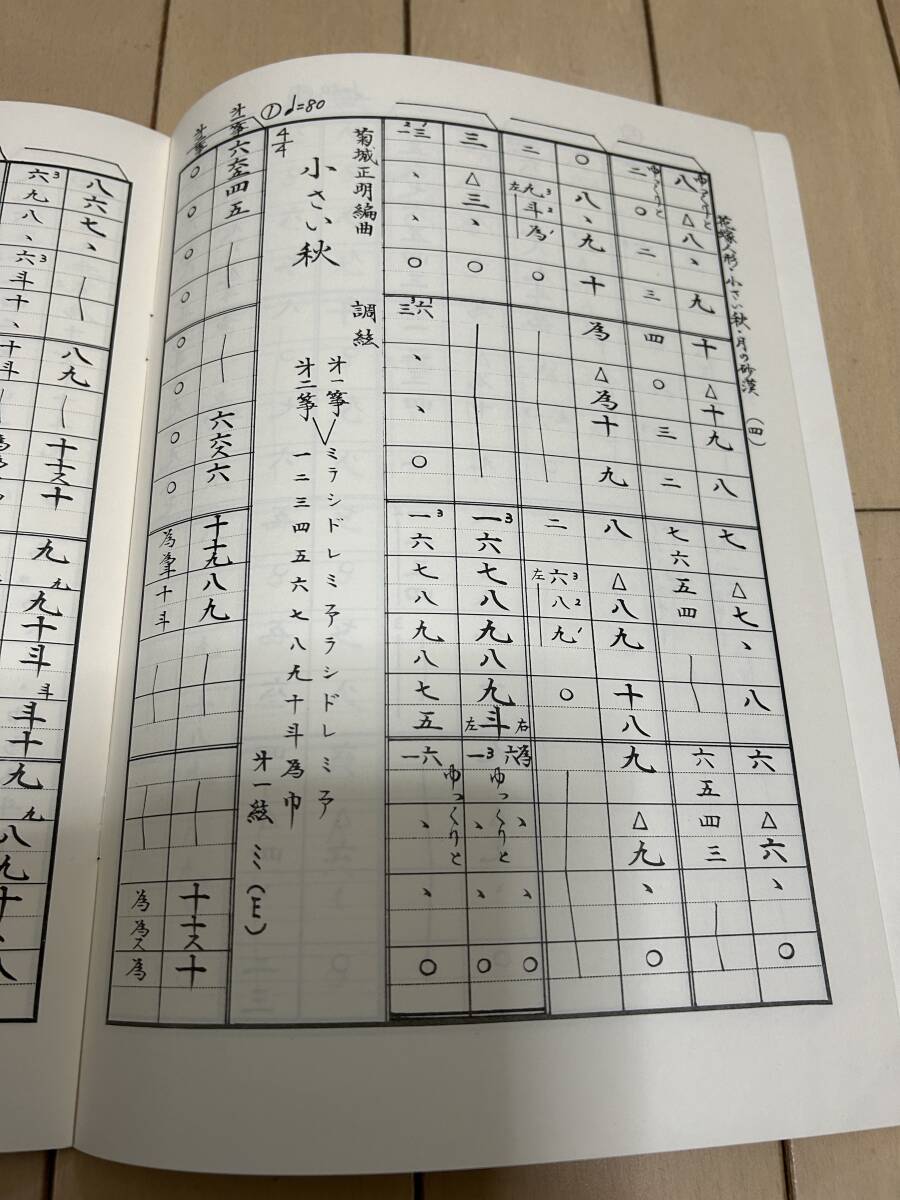 花嫁人形・小さい秋・月の砂漠 (四)
ゆっくりと
八△八、九十△十九八七△七、八六△六、○
ゆっくりと
二○二三四○三二七六五四六五四三
○八、九十為△為十九八△八九十八九△九、○
二左九3斗2為1○二左六3八2九1○
三△三、○一3六七八九八九左斗右一3六為、、、、○○
ゆっくりと
二三、、○三六、、○一3六七八九八七五一六、、○
ゆっくりと
菊城正明編曲 調絃
小さい秋
4/4
① ♩=80
才一箏 ミラシドレミファラシドレミファ
才二箏 一二三四五六七八九十斗為巾
才一絃 ミ(E)
才一箏
六六四五六六ス六十十九八九十十ス十
才二箏
○○○○○○○○為為十斗為為ス為
八六七、八九十十ス十
九九九十斗斗斗十九九八九十、八
六3九八、六3斗十、十斗